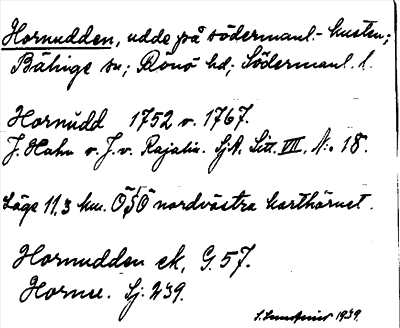 Hornudden, udde på södermanl.- kusten;
Bälinge sn; Rönö hd; Södermanl. l.
Hornudd 1752 o. 1767.
J. Hahn o. J. v. Rajalin. SjA. Litt. VII, N:o 18.
Läge 11,3 km. ÖSÖ nordvästra karthörnet.
Hornudden ek, G. 57.
Hornu. Sj: 239.
1939.